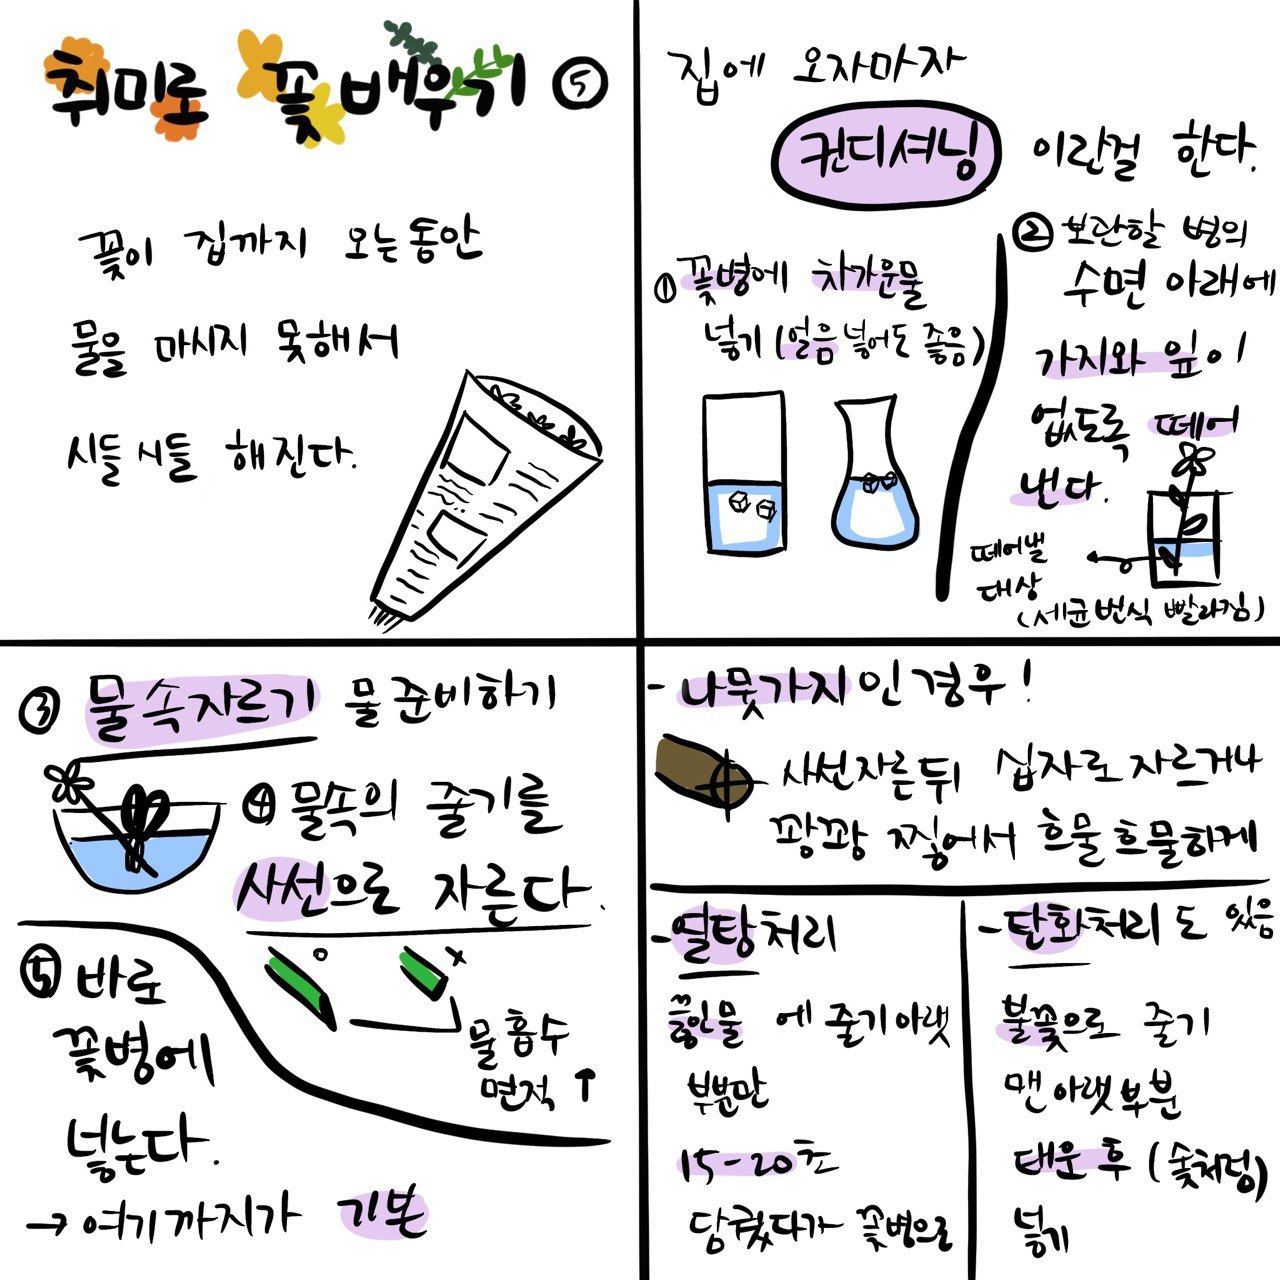 취미로 꽃 배우기 ⑤
꽃이 집까지 오는동안
물을 마시지 못해서
시들시들 해진다.
집에 오자마자
컨디셔닝 이란걸 한다.
① 꽃병에 차가운물
넣기 (얼음 넣어도 좋음)
② 보관할 병의
수면 아래에
가지와 잎이
없도록 떼어
낸다.
떼어낼
대상
(세균번식 빨라짐)
③ 물속자르기 물 준비하기
④ 물속의 줄기를
사선으로 자른다.
물 흡수
면적 ↑
⑤ 바로
꽃병에
넣는다.
→ 여기까지가 기본
- 나뭇가지인 경우!
사선자른뒤 십자로 자르거나
쾅쾅 찧어서 흐물흐물하게
- 열탕처리
끓인물에 줄기아랫
부분만
15-20초
담궜다가 꽃병으로
- 탄화처리도 있음
불꽃으로 줄기
맨 아랫부분
태운 후 (숯처럼)
넣기